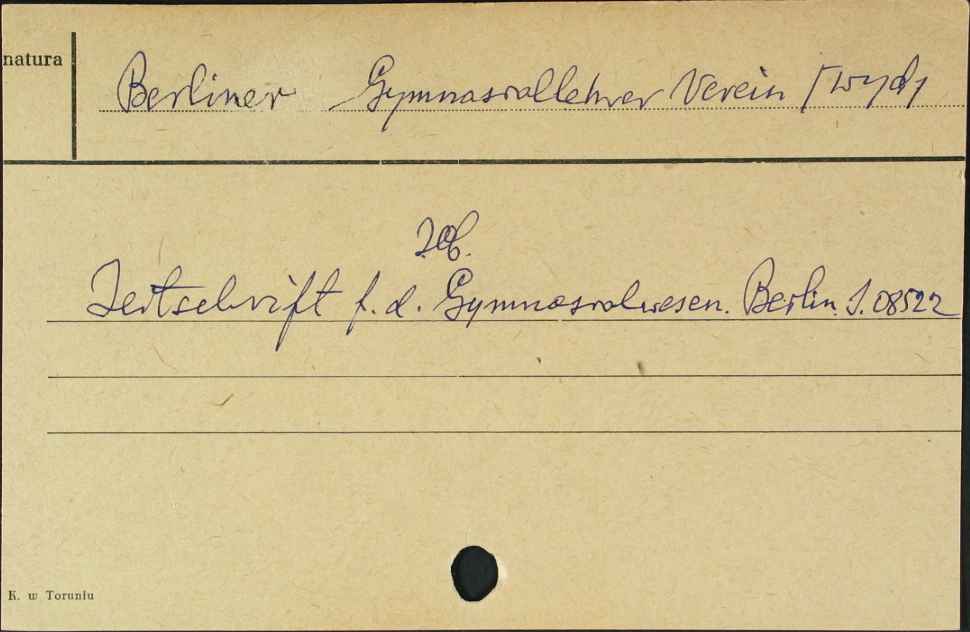 natura
Berliner Gymnasiallehrer Verein [wyd]
Zob.
Zeitschrift f. d. Gymnasialwesen. Berlin. S. 08522
K. w Toruniu